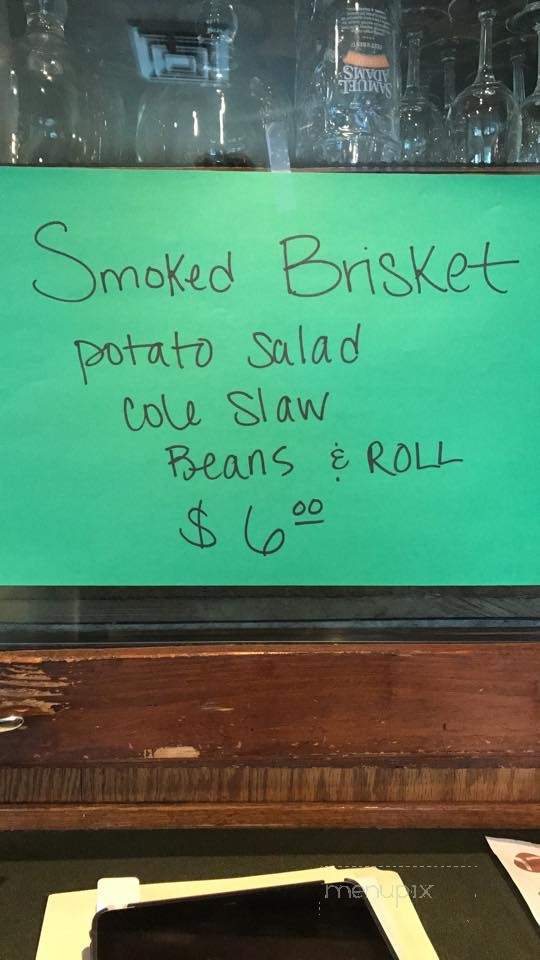 SAMUEL
ADAMS
Smoked Brisket
potato salad
cole slaw
Beans & ROLL
$6.00
menupix